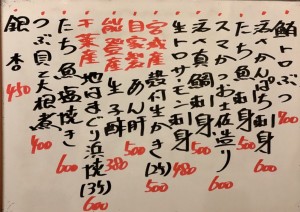 鮪トロぶつ 700
活かんぱち刺身 600
たち魚刺身 500
スマかつお土佐造り 600
活真鯛刺身 500
生トロサーモン刺身 480
宮城産 殻付生かき(2ヶ) 500
自家製 あん肝 500
能登産 生子酢 380
千葉産 地はまぐり浜焼(3ヶ) 600
たち魚塩焼き 600
つぶ貝と大根煮 400
銀杏 450